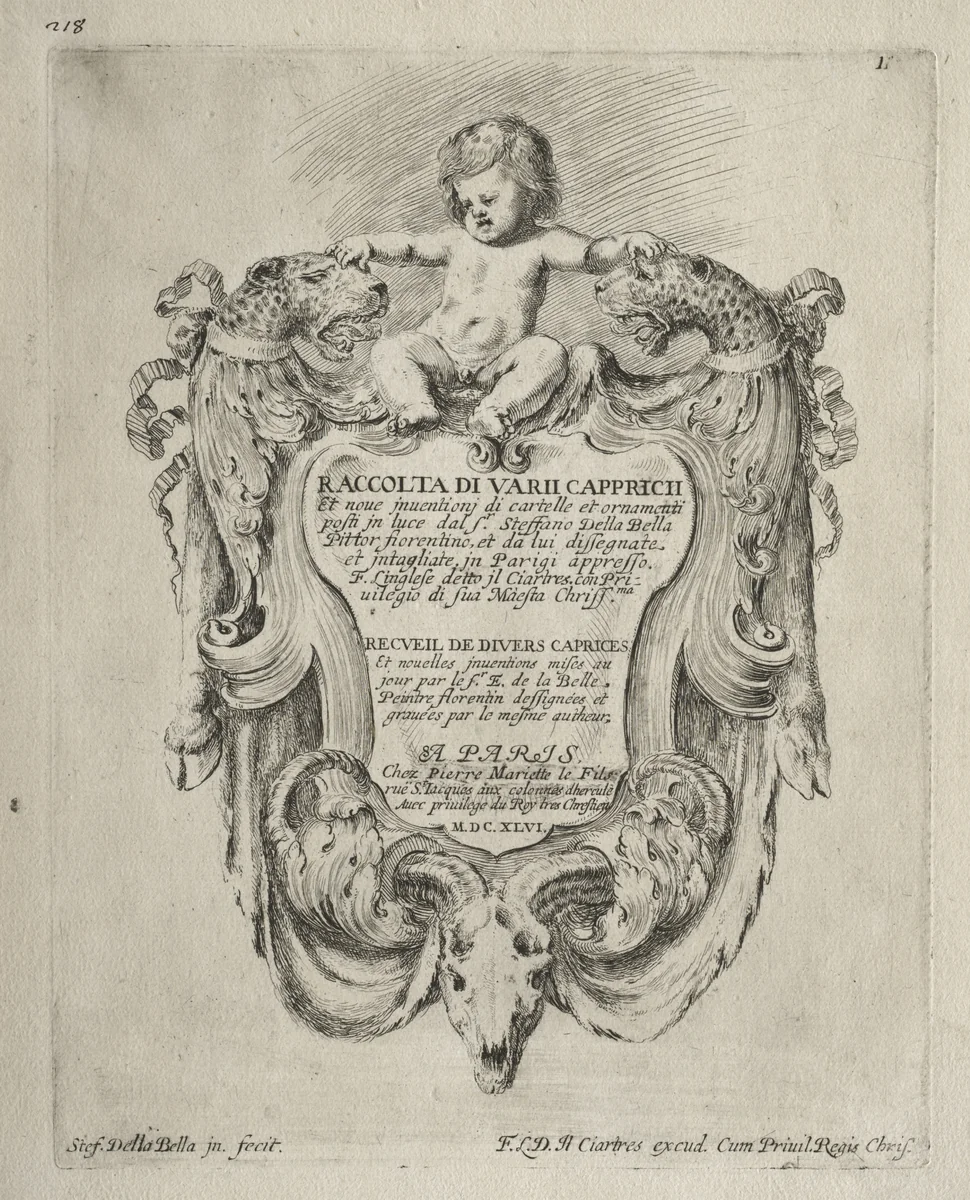 218
1.
RACCOLTA DI VARII CAPPRICII
Et noue jnuentionj di cartelle et ornamenti
posti jn luce dal s.r Steffano Della Bella
Pittor fiorentino, et da lui dissegnate
et jntagliate, jn Parigi appresso.
F. Linglese detto jl Ciartres. con Pri-
uilegio di sua Maesta Chriss.ma
RECVEIL DE DIVERS CAPRICES
Et nouelles jnuentions mises au
jour par le s.r E. de la Belle.
Peintre florentin dessignées et
grauées par le mesme autheur.
A PARIS.
Chez Pierre Mariette le Fils
ruë S.t Iacques aux colonnes dhercule
Auec priuilege du Roy tres Chrestien
M. DC. XLVI.
Stef. Della Bella jn. fecit.
F.L.D. Il Ciartres excud. Cum Priuil. Regis Chris.